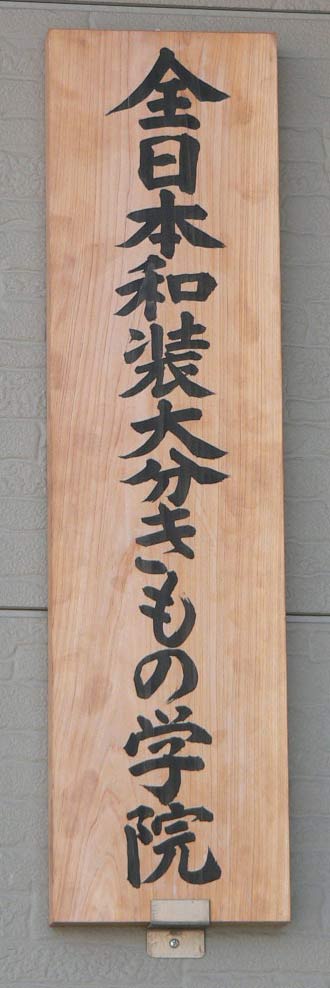 全日本和装大分きもの学院